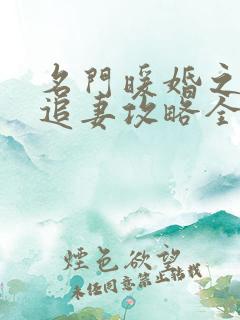 名門暖婚之
追妻攻略全
煙色欲望
未经同意禁止转载